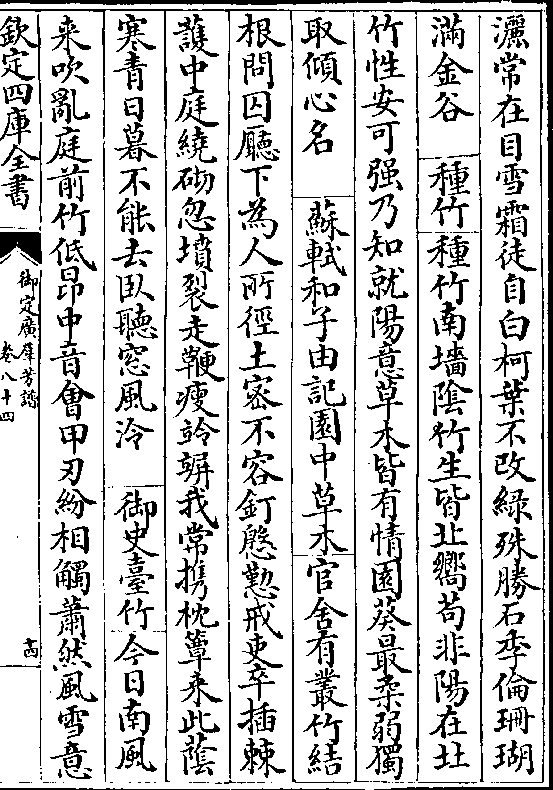 灑常在目雪霜徒自白柯葉不改綠殊勝石季倫珊瑚
滿金谷 種竹 種竹南墻陰竹生皆北嚮苟非陽在北
竹性安可强乃知就陽意草木皆有情園葵最柔弱獨
取傾心名 蘇軾和子由記園中草木 官舍有叢竹結
根問囚廳下為人所徑土密不容釘慇懃戒吏卒插棘
護中庭繞砌忽墳裂走鞭瘦竛竮我常攜枕簟来此蔭
寒青日暮不能去臥聽窓風泠 御史臺竹 今日南風
来吹亂庭前竹低昂中音會甲刃紛相觸蕭然風雪意
欽定四庫全書
御定廣羣芳譜
卷八十四
十四